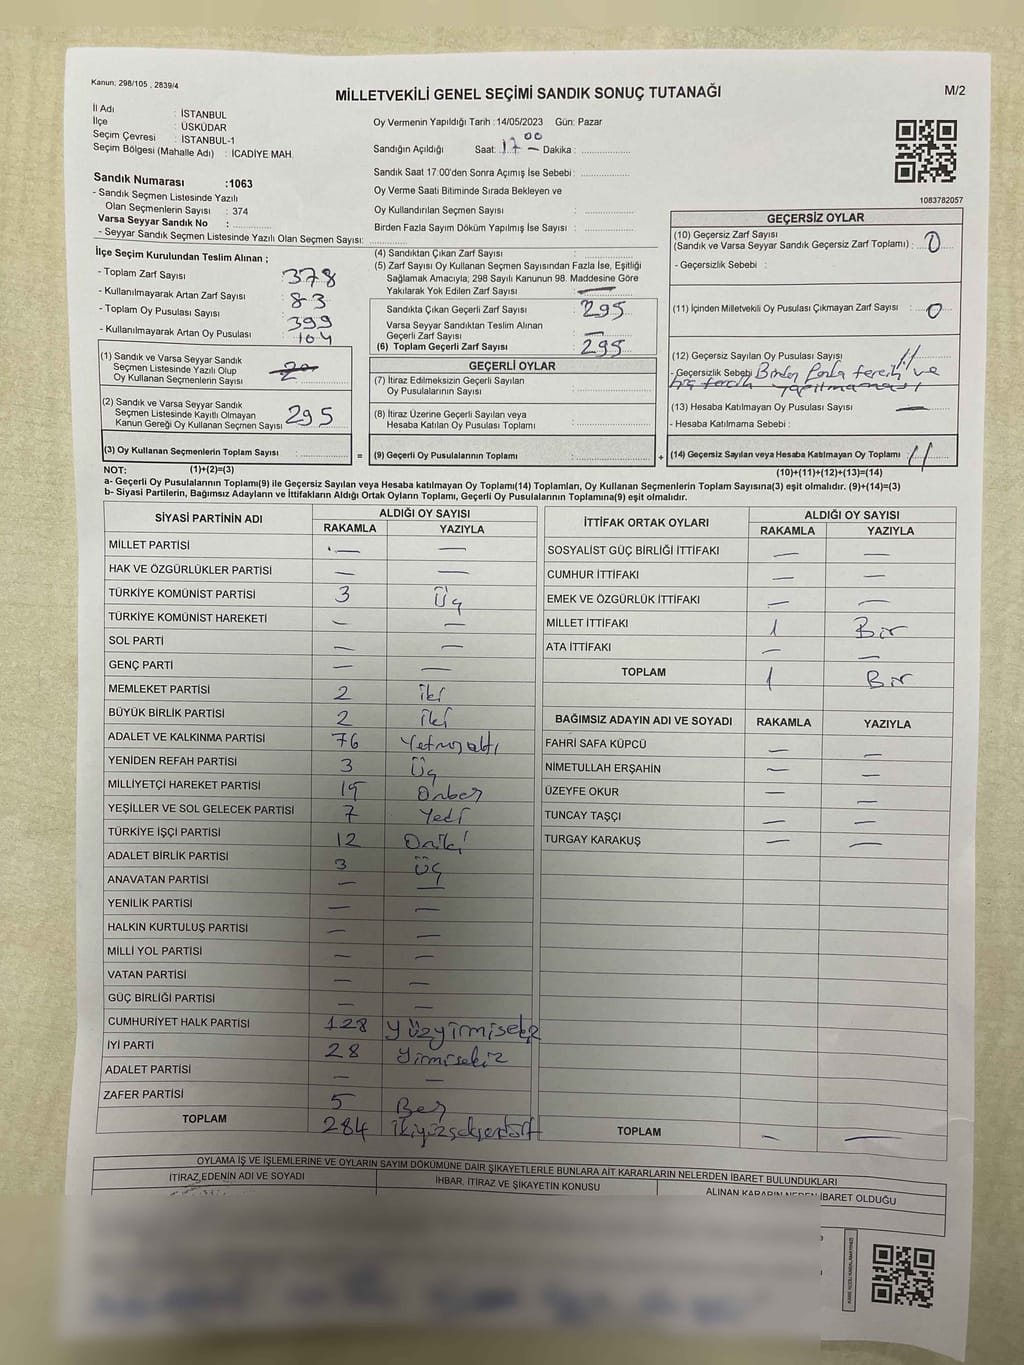 Kanun; 298/105 , 2839/4
MİLLETVEKİLİ GENEL SEÇİMİ SANDIK SONUÇ TUTANAĞI
M/2
İl Adı : İSTANBUL
İlçe : ÜSKÜDAR
Seçim Çevresi : İSTANBUL-1
Seçim Bölgesi (Mahalle Adı) : İCADİYE MAH.
Sandık Numarası :1063
- Sandık Seçmen Listesinde Yazılı
Olan Seçmenlerin Sayısı : 374
Varsa Seyyar Sandık No :
- Seyyar Sandık Seçmen Listesinde Yazılı Olan Seçmen Sayısı:
Oy Vermenin Yapıldığı Tarih :14/05/2023 Gün: Pazar
Sandığın Açıldığı Saat: 17 00 - Dakika :
Sandık Saat 17.00'den Sonra Açımış İse Sebebi :
Oy Verme Saati Bitiminde Sırada Bekleyen ve
Oy Kullandırılan Seçmen Sayısı :
Birden Fazla Sayım Döküm Yapılmış İse Sayısı :
1083782057
İlçe Seçim Kurulundan Teslim Alınan ;
- Toplam Zarf Sayısı 378
- Kullanılmayarak Artan Zarf Sayısı 83
- Toplam Oy Pusulası Sayısı 399
- Kullanılmayarak Artan Oy Pusulası 104
(1) Sandık ve Varsa Seyyar Sandık
Seçmen Listesinde Yazılı Olup
Oy Kullanan Seçmenlerin Sayısı
(2) Sandık ve Varsa Seyyar Sandık
Seçmen Listesinde Kayıtlı Olmayan
Kanun Gereği Oy Kullanan Seçmen Sayısı 295
(3) Oy Kullanan Seçmenlerin Toplam Sayısı :
=
(4) Sandıktan Çıkan Zarf Sayısı :
(5) Zarf Sayısı Oy Kullanan Seçmen Sayısından Fazla İse, Eşitliği
Sağlamak Amacıyla; 298 Sayılı Kanunun 98. Maddesine Göre
Yakılarak Yok Edilen Zarf Sayısı : —
Sandıkta Çıkan Geçerli Zarf Sayısı : 295
Varsa Seyyar Sandıktan Teslim Alınan
Geçerli Zarf Sayısı : —
(6) Toplam Geçerli Zarf Sayısı : 295
GEÇERLİ OYLAR
(7) İtiraz Edilmeksizin Geçerli Sayılan
Oy Pusulalarının Sayısı :
(8) İtiraz Üzerine Geçerli Sayılan veya
Hesaba Katılan Oy Pusulası Toplamı :
(9) Geçerli Oy Pusulalarının Toplamı :
+
GEÇERSİZ OYLAR
(10) Geçersiz Zarf Sayısı
(Sandık ve Varsa Seyyar Sandık Geçersiz Zarf Toplamı) : 0
- Geçersizlik Sebebi :
(11) İçinden Milletvekili Oy Pusulası Çıkmayan Zarf Sayısı : 0
(12) Geçersiz Sayılan Oy Pusulası Sayısı 11
- Geçersizlik Sebebi Birden fazla tercih ve
hiç tercih yapılmaması
(13) Hesaba Katılmayan Oy Pusulası Sayısı —
- Hesaba Katılmama Sebebi :
(14) Geçersiz Sayılan veya Hesaba Katılmayan Oy Toplamı 11
NOT: (1)+(2)=(3)
(10)+(11)+(12)+(13)=(14)
a- Geçerli Oy Pusulalarının Toplamı(9) ile Geçersiz Sayılan veya Hesaba katılmayan Oy Toplamı(14) Toplamları, Oy Kullanan Seçmenlerin Toplam Sayısına(3) eşit olmalıdır. (9)+(14)=(3)
b- Siyasi Partilerin, Bağımsız Adayların ve İttifakların Aldığı Ortak Oyların Toplamı, Geçerli Oy Pusulalarının Toplamına(9) eşit olmalıdır.
SİYASİ PARTİNİN ADI ALDIĞI OY SAYISI
RAKAMLA YAZIYLA
MİLLET PARTİSİ — —
HAK VE ÖZGÜRLÜKLER PARTİSİ — —
TÜRKİYE KOMÜNİST PARTİSİ 3 Üç
TÜRKİYE KOMÜNİST HAREKETİ — —
SOL PARTİ — —
GENÇ PARTİ — —
MEMLEKET PARTİSİ 2 iki
BÜYÜK BİRLİK PARTİSİ 2 İki
ADALET VE KALKINMA PARTİSİ 76 Yetmişaltı
YENİDEN REFAH PARTİSİ 3 Üç
MİLLİYETÇİ HAREKET PARTİSİ 15 Onbeş
YEŞİLLER VE SOL GELECEK PARTİSİ 7 Yedi
TÜRKİYE İŞÇİ PARTİSİ 12 Oniki
ADALET BİRLİK PARTİSİ 3 Üç
ANAVATAN PARTİSİ — —
YENİLİK PARTİSİ — —
HALKIN KURTULUŞ PARTİSİ — —
MİLLİ YOL PARTİSİ — —
VATAN PARTİSİ — —
GÜÇ BİRLİĞİ PARTİSİ — —
CUMHURİYET HALK PARTİSİ 128 Yüzyirmisekiz
İYİ PARTİ 28 Yirmisekiz
ADALET PARTİSİ — —
ZAFER PARTİSİ 5 Beş
TOPLAM 284 İkiyüzseksendört
İTTİFAK ORTAK OYLARI ALDIĞI OY SAYISI
RAKAMLA YAZIYLA
SOSYALİST GÜÇ BİRLİĞİ İTTİFAKI — —
CUMHUR İTTİFAKI — —
EMEK VE ÖZGÜRLÜK İTTİFAKI — —
MİLLET İTTİFAKI 1 Bir
ATA İTTİFAKI — —
TOPLAM 1 Bir
BAĞIMSIZ ADAYIN ADI VE SOYADI RAKAMLA YAZIYLA
FAHRİ SAFA KÜPCÜ — —
NİMETULLAH ERŞAHİN — —
ÜZEYFE OKUR — —
TUNCAY TAŞÇI — —
TURGAY KARAKUŞ — —
TOPLAM — —
OYLAMA İŞ VE İŞLEMLERİNE VE OYLARIN SAYIM DÖKÜMÜNE DAİR ŞİKAYETLERLE BUNLARA AİT KARARLARIN NELERDEN İBARET BULUNDUKLARI
İTİRAZ EDENİN ADI VE SOYADI İHBAR, İTİRAZ VE ŞİKAYETİN KONUSU ALINAN KARARIN NEDEN İBARET OLDUĞU